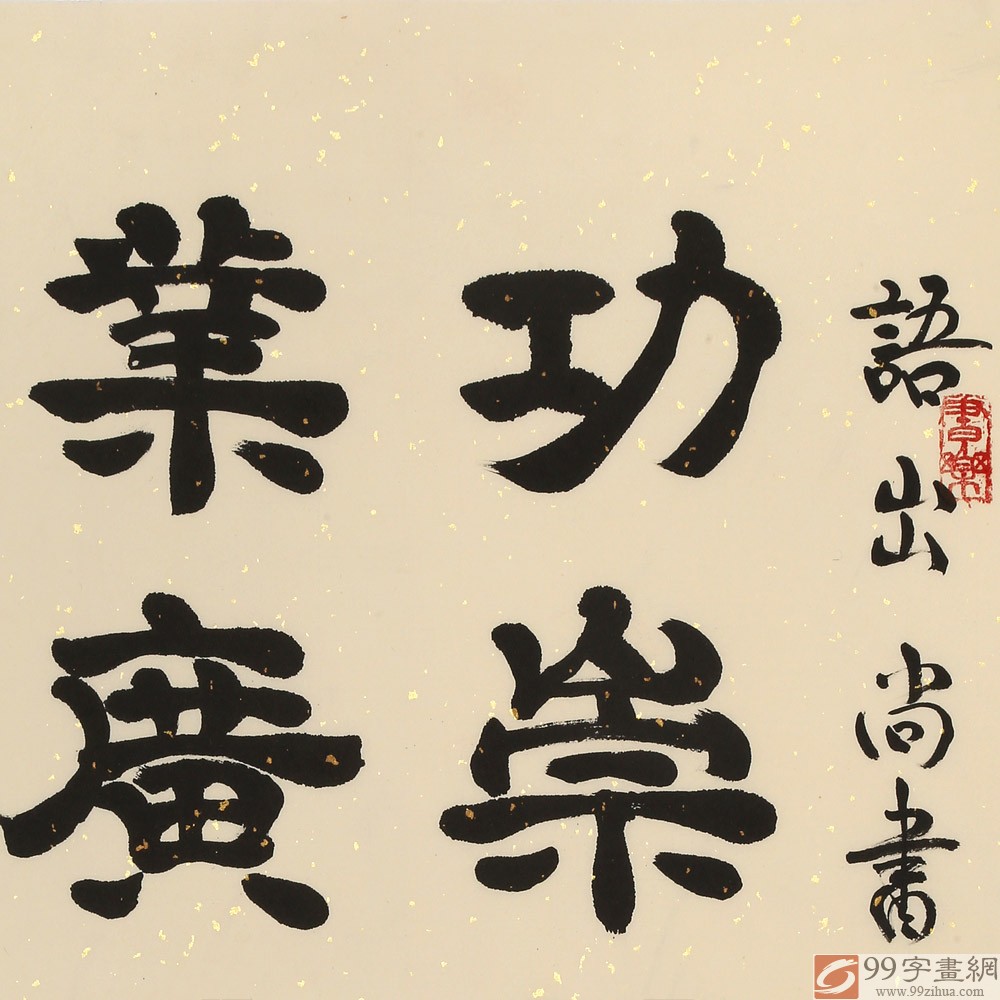 語出尚書
功崇
業廣
書樂
99字畫網
www.99zihua.com